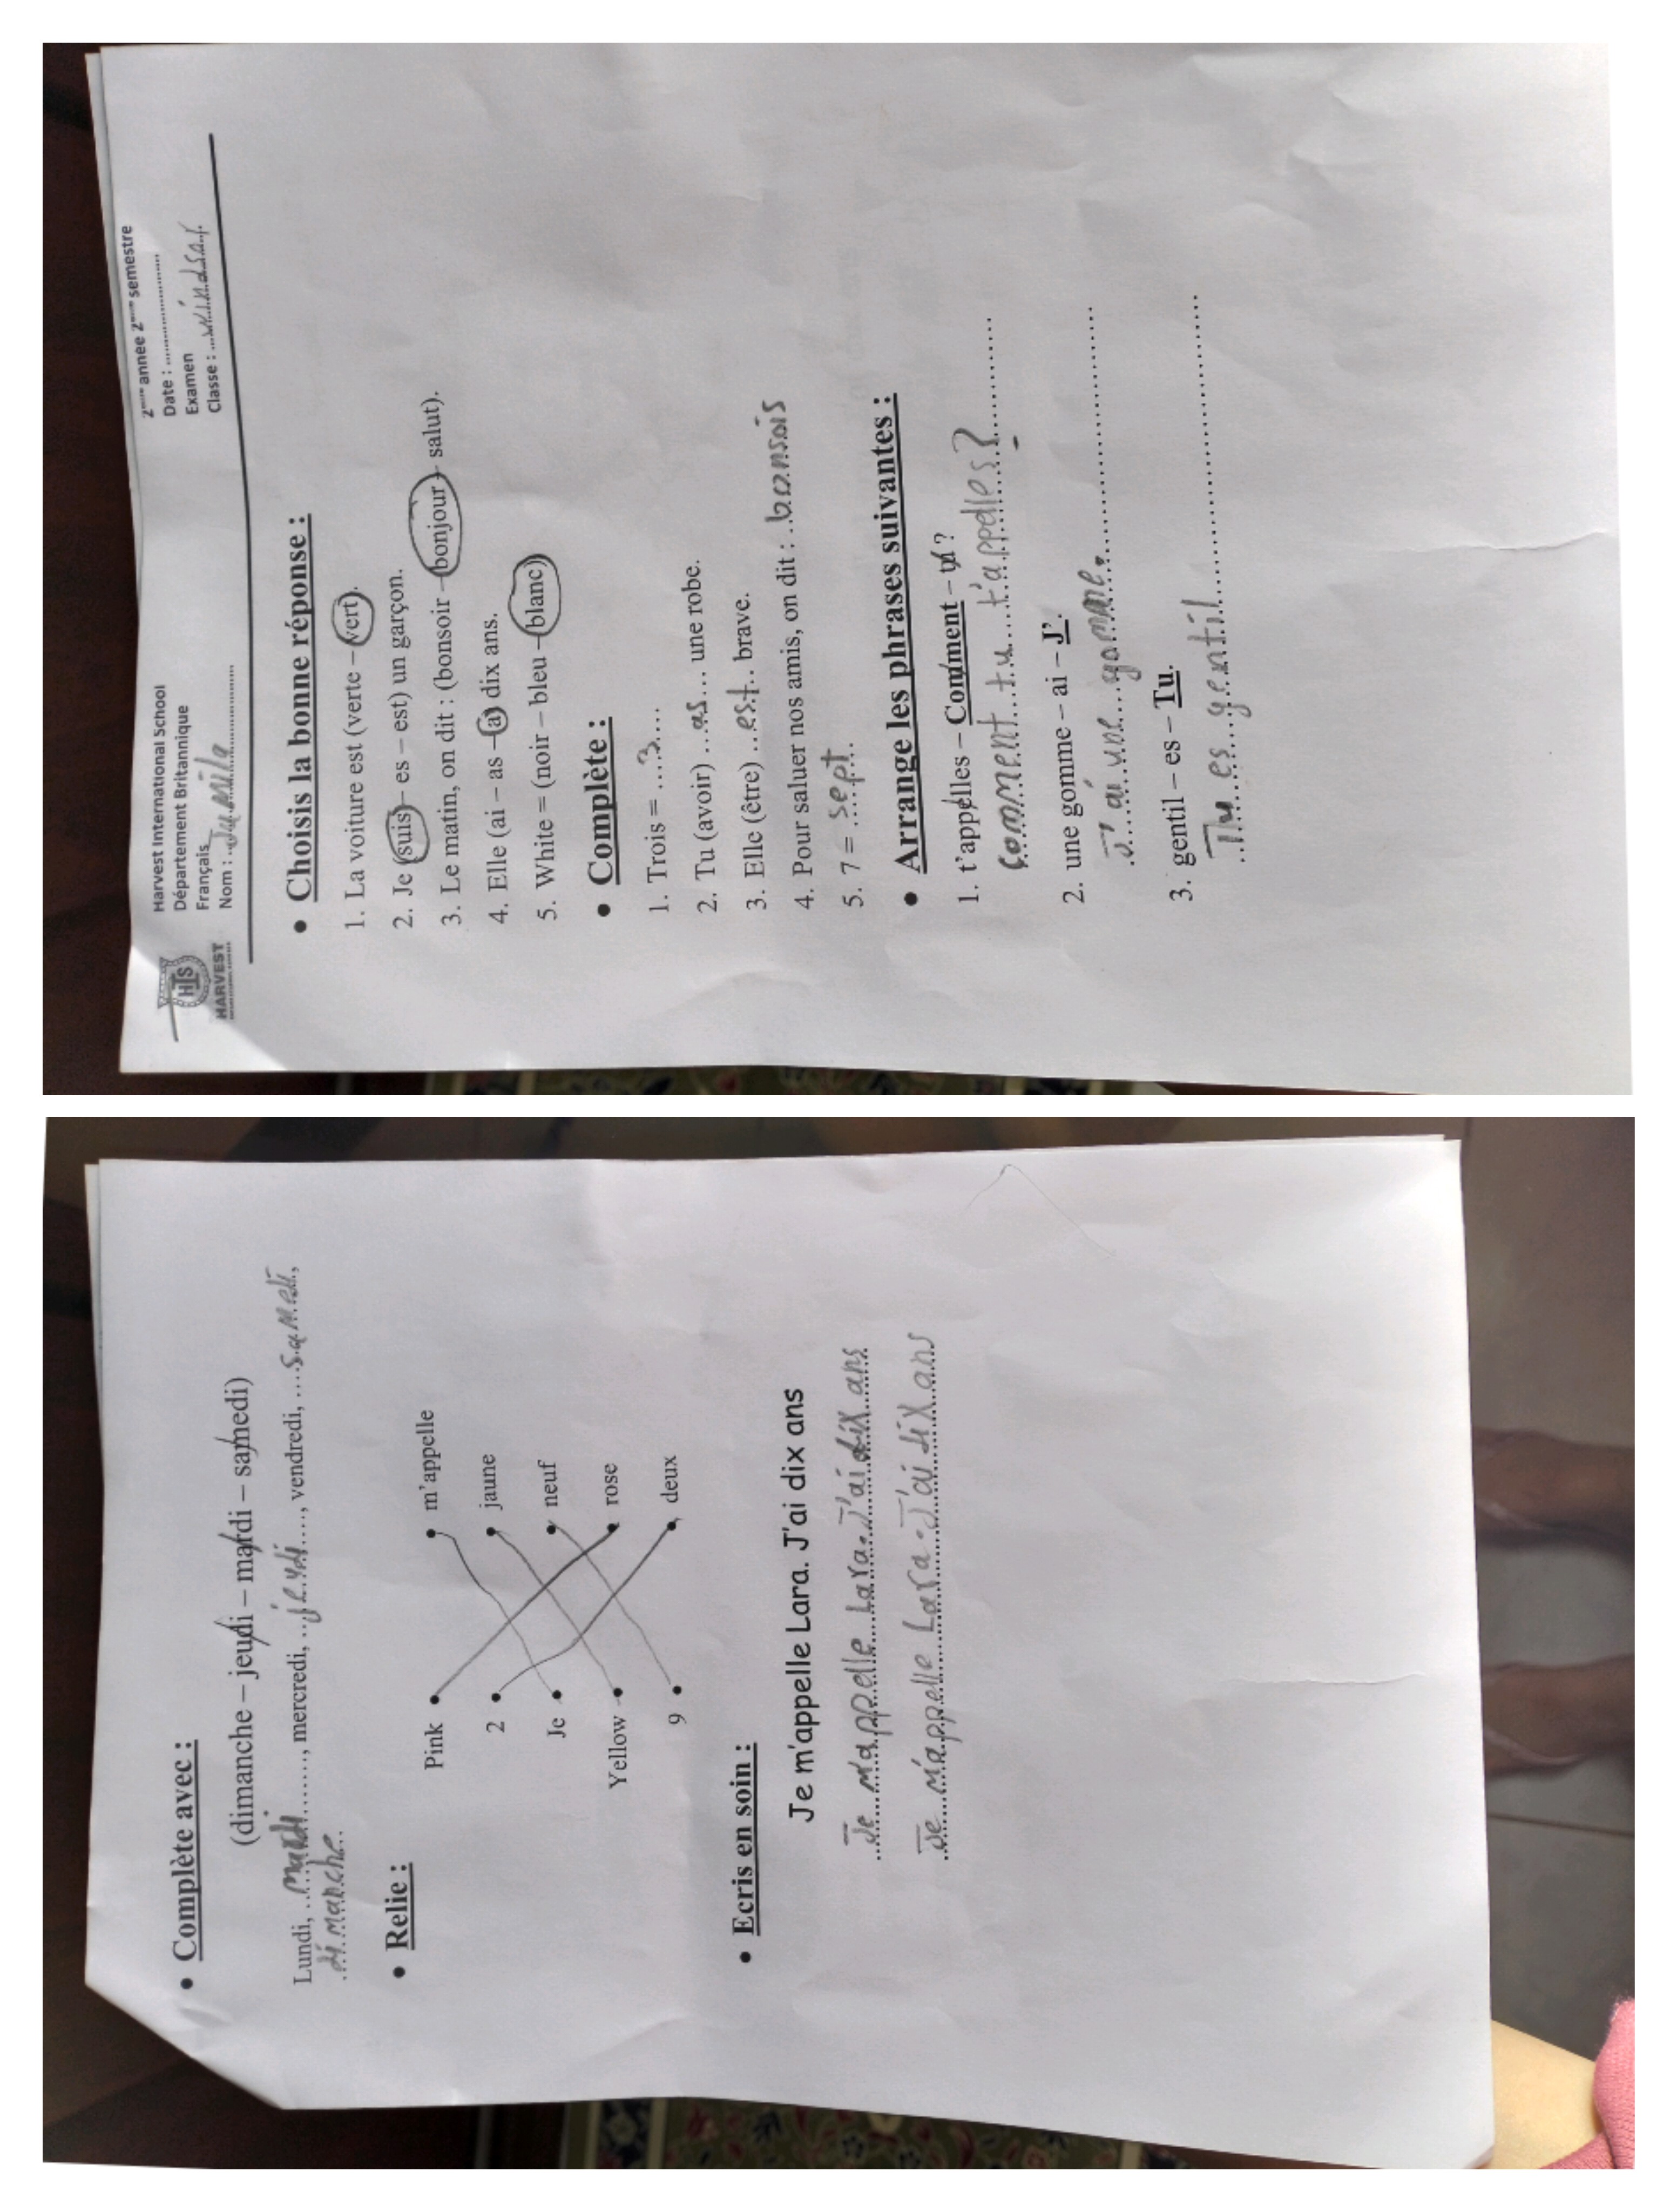 HIS
HARVEST
Harvest International School
Département Britannique
Français
Nom : Jamila
2ème année 2ème semestre
Date : ........................
Examen
Classe : windsar
• Choisis la bonne réponse :
1. La voiture est (verte – vert).
2. Je (suis – es – est) un garçon.
3. Le matin, on dit : (bonsoir – bonjour – salut).
4. Elle (ai – as – a) dix ans.
5. White = (noir – bleu – blanc)
• Complète :
1. Trois = ....3....
2. Tu (avoir) ...as... une robe.
3. Elle (être) ...est.. brave.
4. Pour saluer nos amis, on dit : ..bonsois
5. 7 = ..sept..
• Arrange les phrases suivantes :
1. t'appelles – Comment – tu ?
Comment tu t'appelles?
2. une gomme – ai – J'.
J'ai une gomme.
3. gentil – es – Tu.
Tu es gentil
• Complète avec :
(dimanche – jeudi – mardi – samedi)
Lundi, ..mardi......, mercredi, ..jeudi...., vendredi, ....samedi,
.dimanche.
• Relie :
Pink • • m'appelle
2 • • jaune
Je • • neuf
Yellow • • rose
9 • • deux
• Ecris en soin :
Je m'appelle Lara. J'ai dix ans
Je m'appelle Lara. J'ai dix ans
Je m'appelle Lara. J'ai dix ans